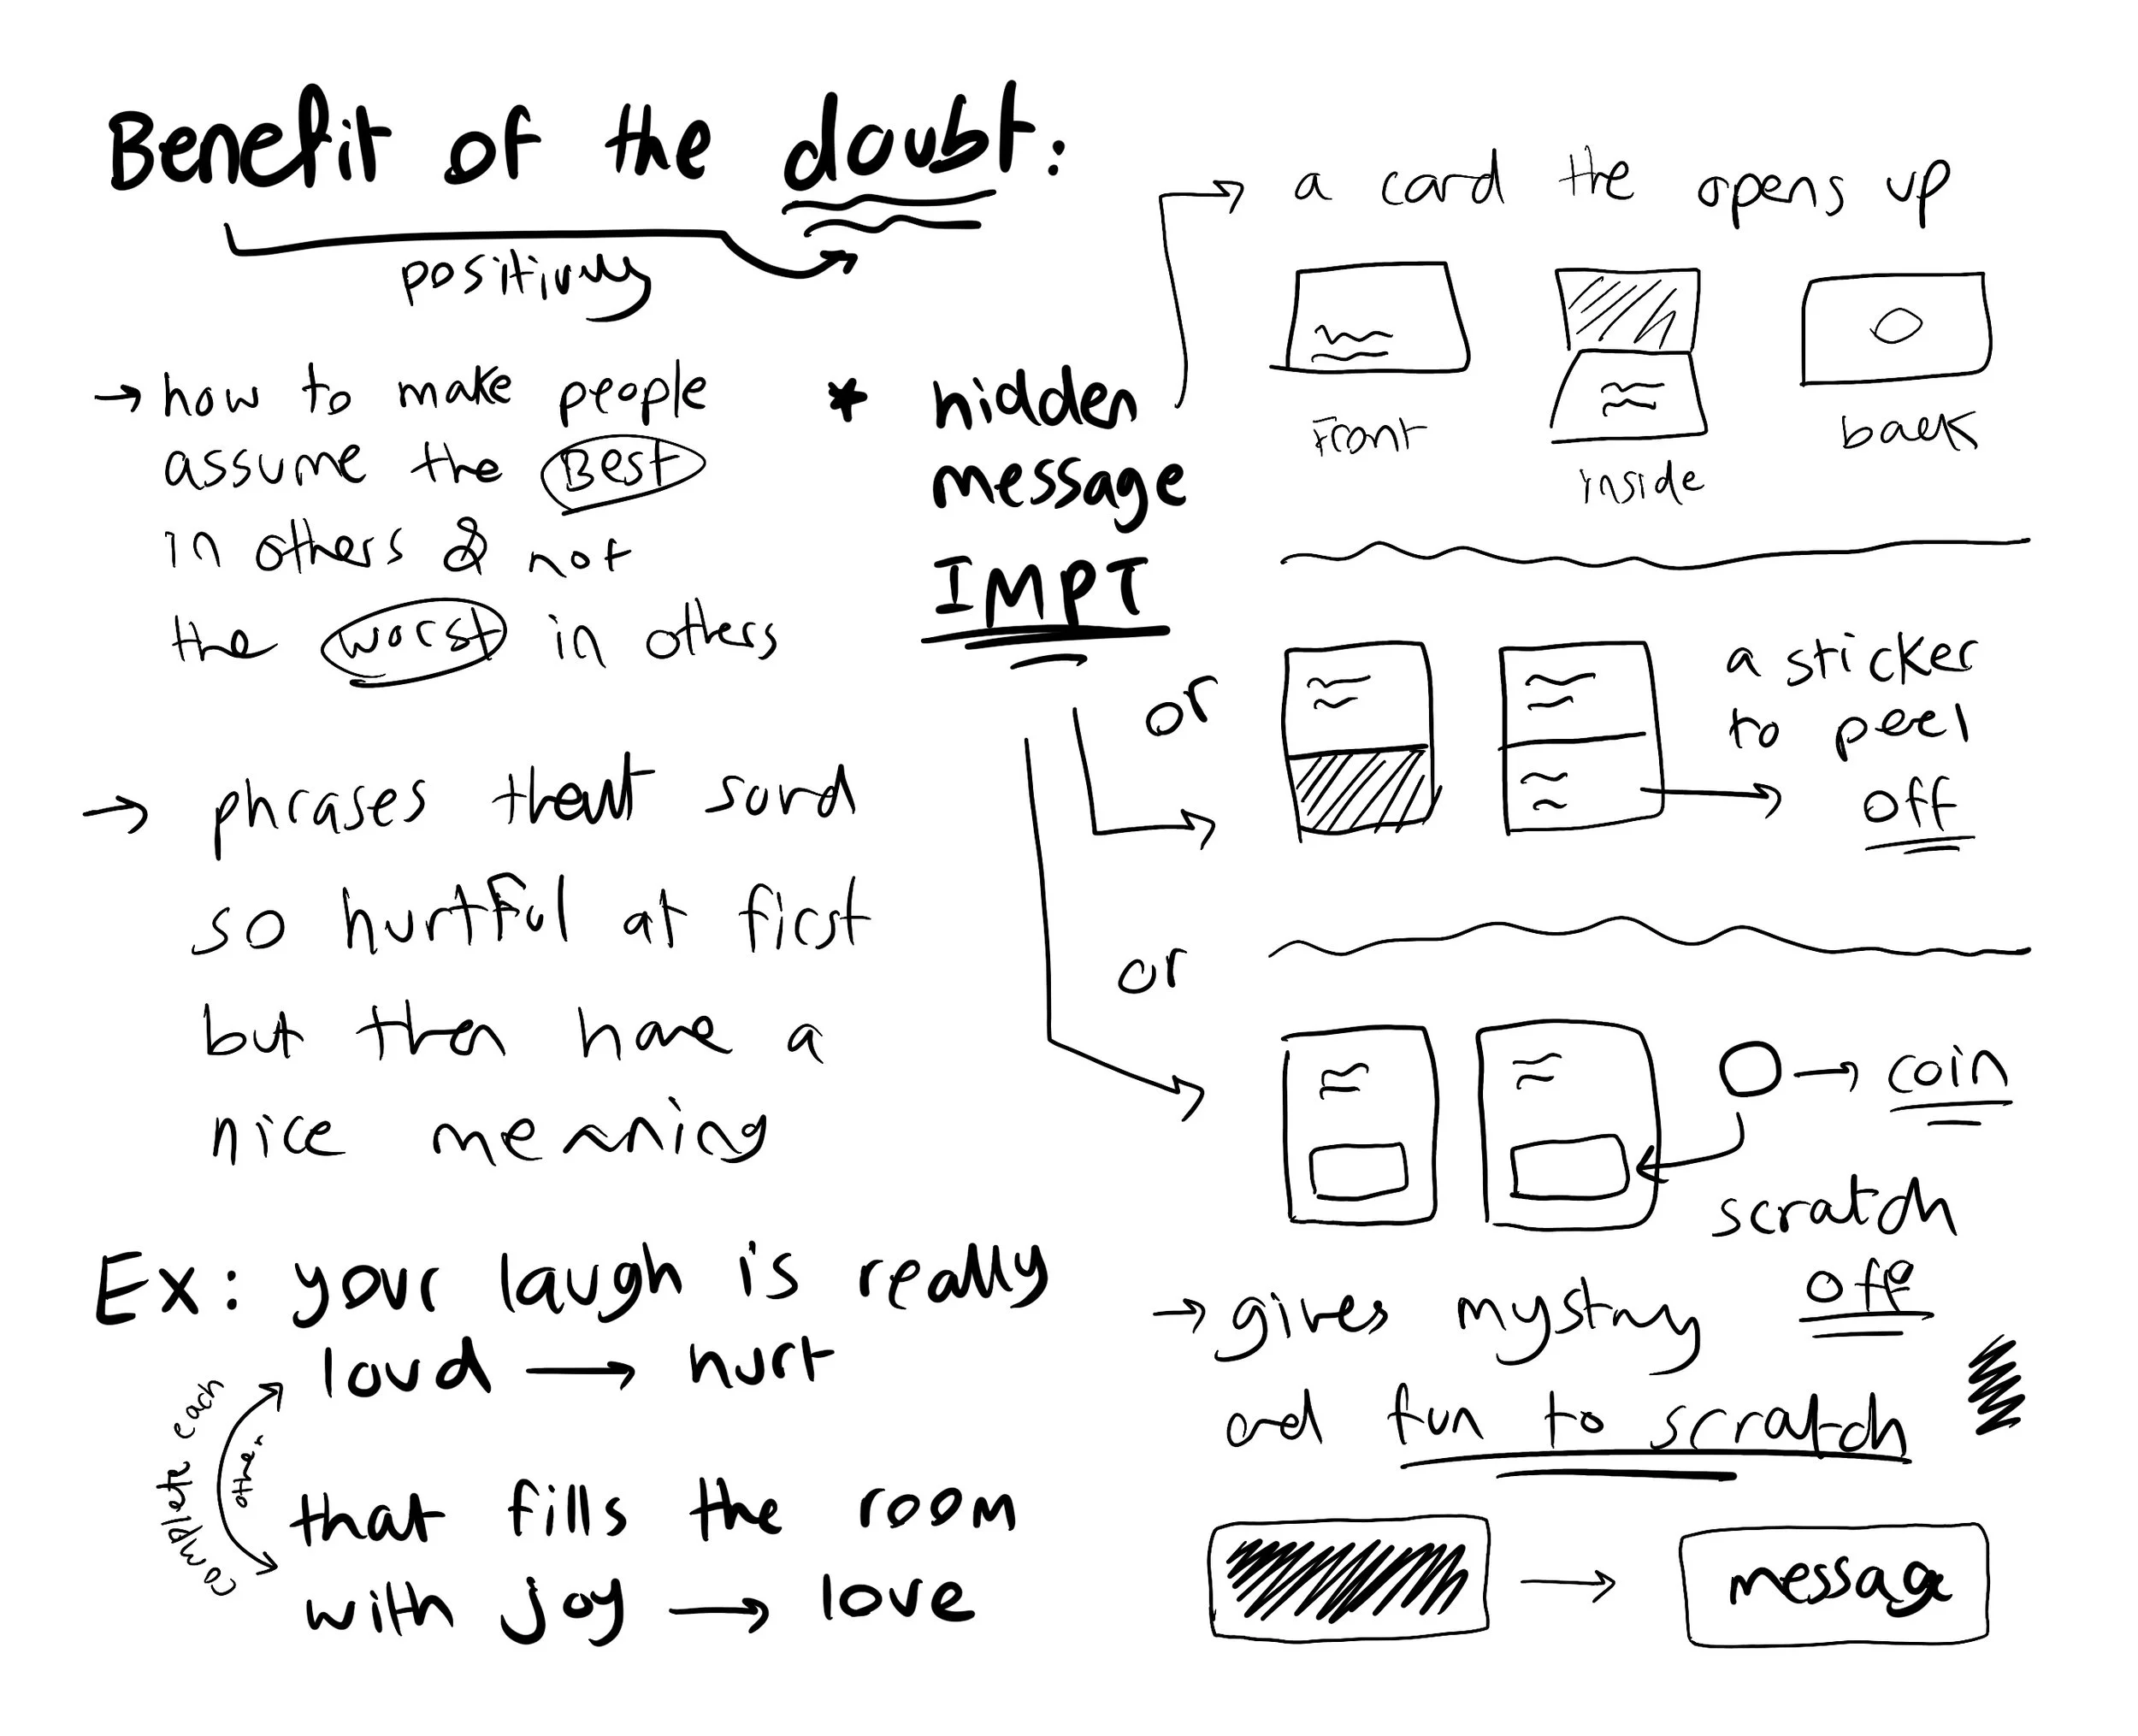 Benefit of the doubt:
positivly
→ how to make people
assume the Best
in others & not
the worst in others
→ phrases that sound
so hurtful at first
but then have a
nice meaning
Ex: your laugh is really
loud → hurt
complete each
other
that fills the room
with joy → love
* hidden
message
IMPT
a card the opens up
Front
inside
back
or
a sticker
to peel
off
or
coin
scratch
off
→ gives mystry
and fun to scratch
→ message